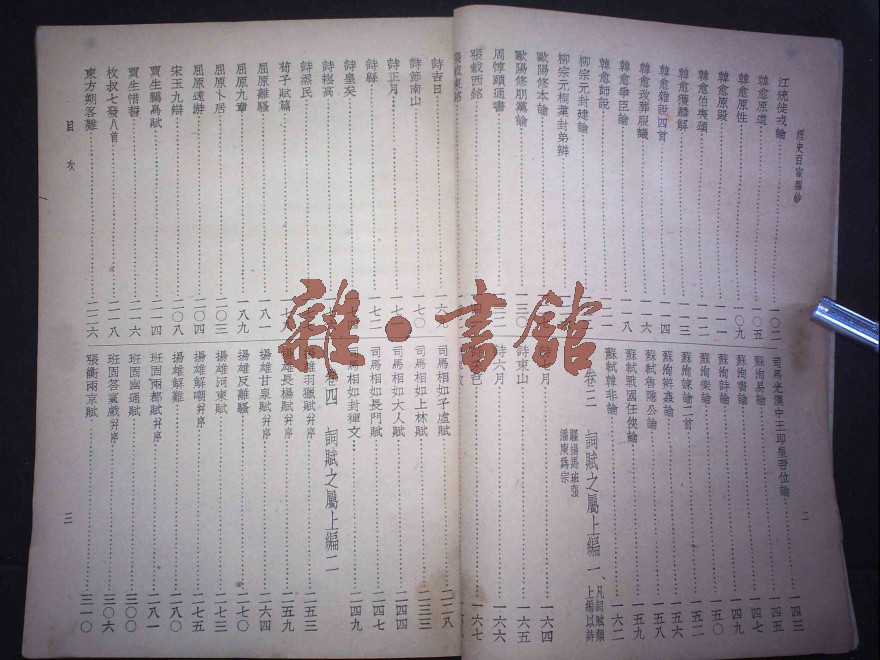 經史百家雜鈔
二
江統徙戎論 一〇二
韓愈原道 一〇五
韓愈原性 一〇九
韓愈原毀 一一一
韓愈伯夷頌 一一二
韓愈獲麟解 一一三
韓愈雜說四首 一一四
韓愈改葬服議 一一六
韓愈爭臣論 一一八
韓愈師說
柳宗元封建論
柳宗元桐葉封弟辨
歐陽修本論
歐陽修朋黨論 一三〇
周惇頤通書
張載西銘
張載東銘
司馬光漢中王即皇帝位論 一四三
蘇洵易論 一四五
蘇洵書論 一四七
蘇洵詩論 一四九
蘇洵樂論 一五〇
蘇洵諫論二首
蘇洵辨姦論 一五六
蘇軾魯隱公論 一五八
蘇軾戰國任俠論 一五九
蘇軾韓非論 一六二
卷三 詞賦之屬上編一、凡詞賦類上編以詩
騷揚馬班張
潘庾為宗
月 一六四
詩東山 一六五
詩六月 一六六
一六七
詩吉日 一六九
詩節南山 一七〇
詩正月 一七一
詩縣 一七二
詩皇矣
詩崧高
詩烝民
荀子賦篇
屈原離騷 一八一
屈原九章 一八九
屈原卜居 二〇三
屈原遠游 二〇四
宋玉九辯 二〇八
賈生鵩鳥賦 二一四
賈生惜誓 二一六
枚叔七發八首 二一八
東方朔客難 二二六
司馬相如子虛賦 二二八
司馬相如上林賦 二三三
司馬相如大人賦 二四四
司馬相如長門賦 二四七
司馬相如封禪文 二四九
卷四 詞賦之屬上編二
揚雄羽獵賦并序 二五三
揚雄長楊賦并序 二五九
揚雄甘泉賦并序 二六四
揚雄反離騷 二七〇
揚雄河東賦 二七三
揚雄解嘲并序 二七五
揚雄解難 二八〇
班固兩都賦并序 二八一
班固幽通賦
班固答賓戲并序 三〇六
張衡兩京賦 三一〇
目次
三
雜·書館